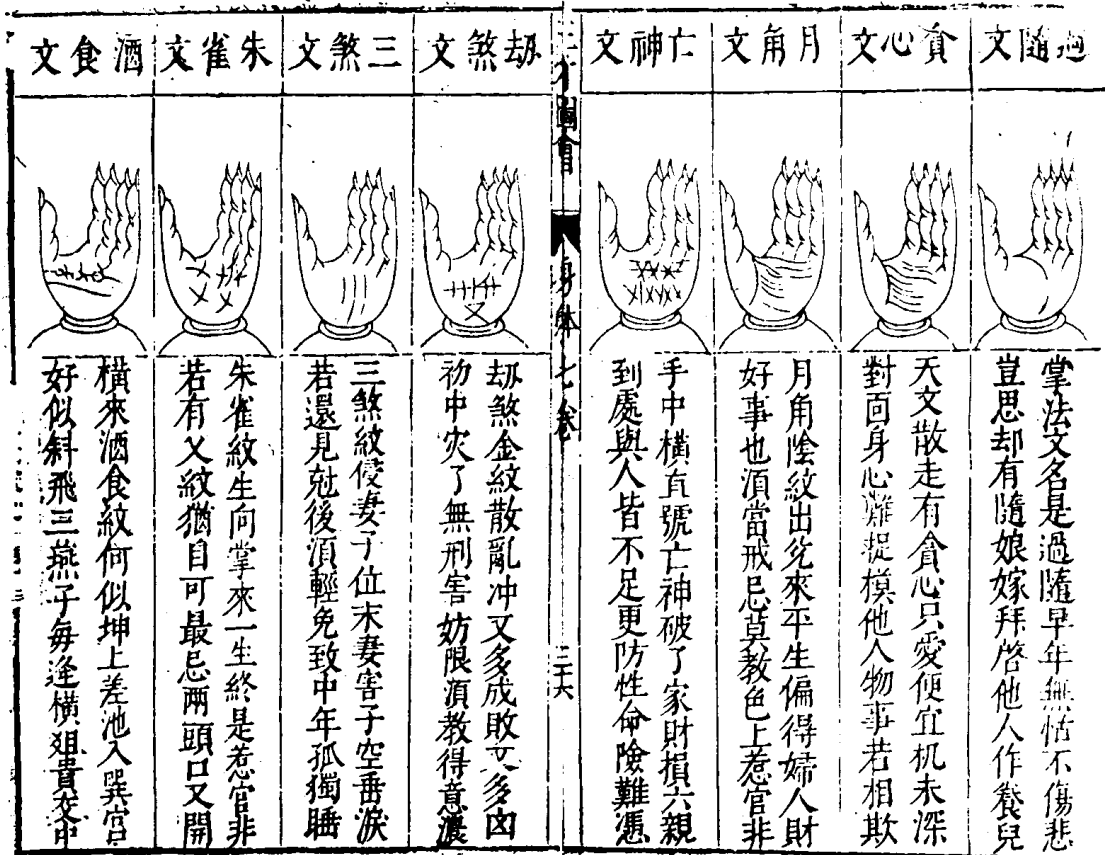 過隨文
掌法文名是過隨早年無怙不傷悲
豈思却有隨娘嫁拜啓他人作養兒
貪心文
天文散走有貪心只愛便宜机未深
對面身心難捉模他人物事若相欺
月角文
月角陰紋出兊來平生偏得婦人財
好事也湏當戒忌莫教色上惹官非
亡神文
手中橫直號亡神破了家財損六親
到處與人皆不足更防性命險難憑
三才圖會
身體七卷
三十六
刼煞文
刼煞金紋散亂冲又多成敗又多凶
初中灾了無刑害妨限湏教得意濃
三煞文
三煞紋侵妻子位末妻害子空垂淚
若還見尅後湏輕免致中年孤獨睡
朱雀文
朱雀紋生向掌來一生終是惹官非
若有乂紋猶自可最忌兩頭口又開
酒食文
橫來酒食紋何似坤上差池入巽宮
好似斜飛三燕子每逢橫狙貴交中